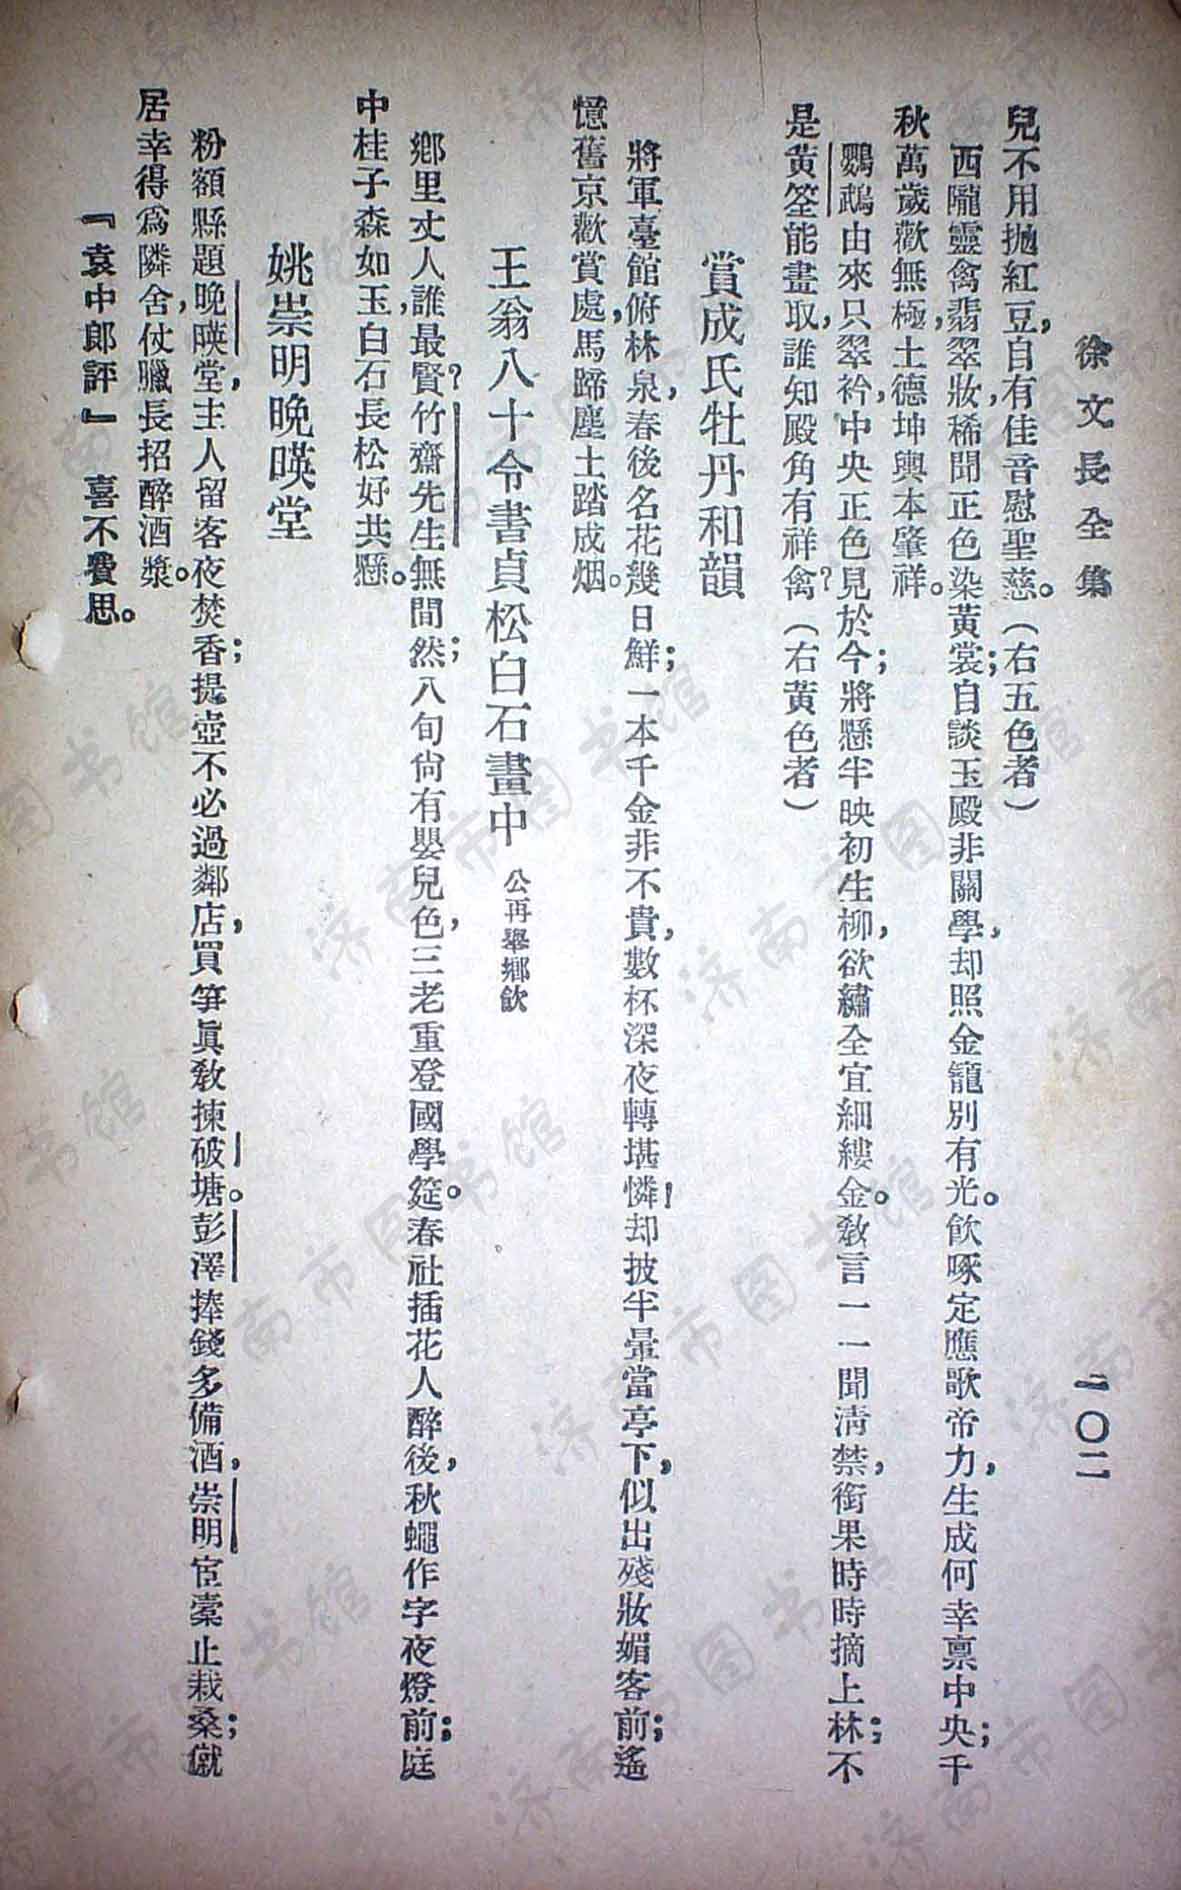 徐文長全集
一〇二
兒不用拋紅豆，自有佳音慰聖慈。（右五色者）
西隴靈禽翡翠妝，稀聞正色染黃裳；自談玉殿非關學，却照金籠別有光。飲啄定應歌帝力，生成何幸稟中央；千
秋萬歲歡無極，土德坤輿本肇祥。
鸚鵡由來只翠衿，中央正色見於今；將懸半映初生柳，欲繡全宜細縷金。敎言一一聞淸禁，銜果時時摘上林；不
是黃筌能畫取，誰知殿角有祥禽？（右黃色者）
賞成氏牡丹和韻
將軍臺館俯林泉，春後名花幾日鮮；一本千金非不貴，數杯深夜轉堪憐！却披半暈當亭下，似出殘妝媚客前；遙
憶舊京歡賞處，馬蹄塵土踏成烟。
王翁八十令書貞松白石畫中 公再舉鄉飲
鄉里丈人誰最賢？竹齋先生無間然；八旬尙有嬰兒色，三老重登國學筵。春社插花人醉後，秋蠅作字夜燈前；庭
中桂子森如玉，白石長松好共懸。
姚崇明晚暎堂
粉額縣題晚暎堂，主人留客夜焚香；提壺不必過鄰店，買笋眞敎揀破塘。彭澤捧錢多備酒，崇明宦橐止栽桑；僦
居幸得爲隣舍，伏臘長招醉酒漿。
『袁中郎評』 喜不費思。